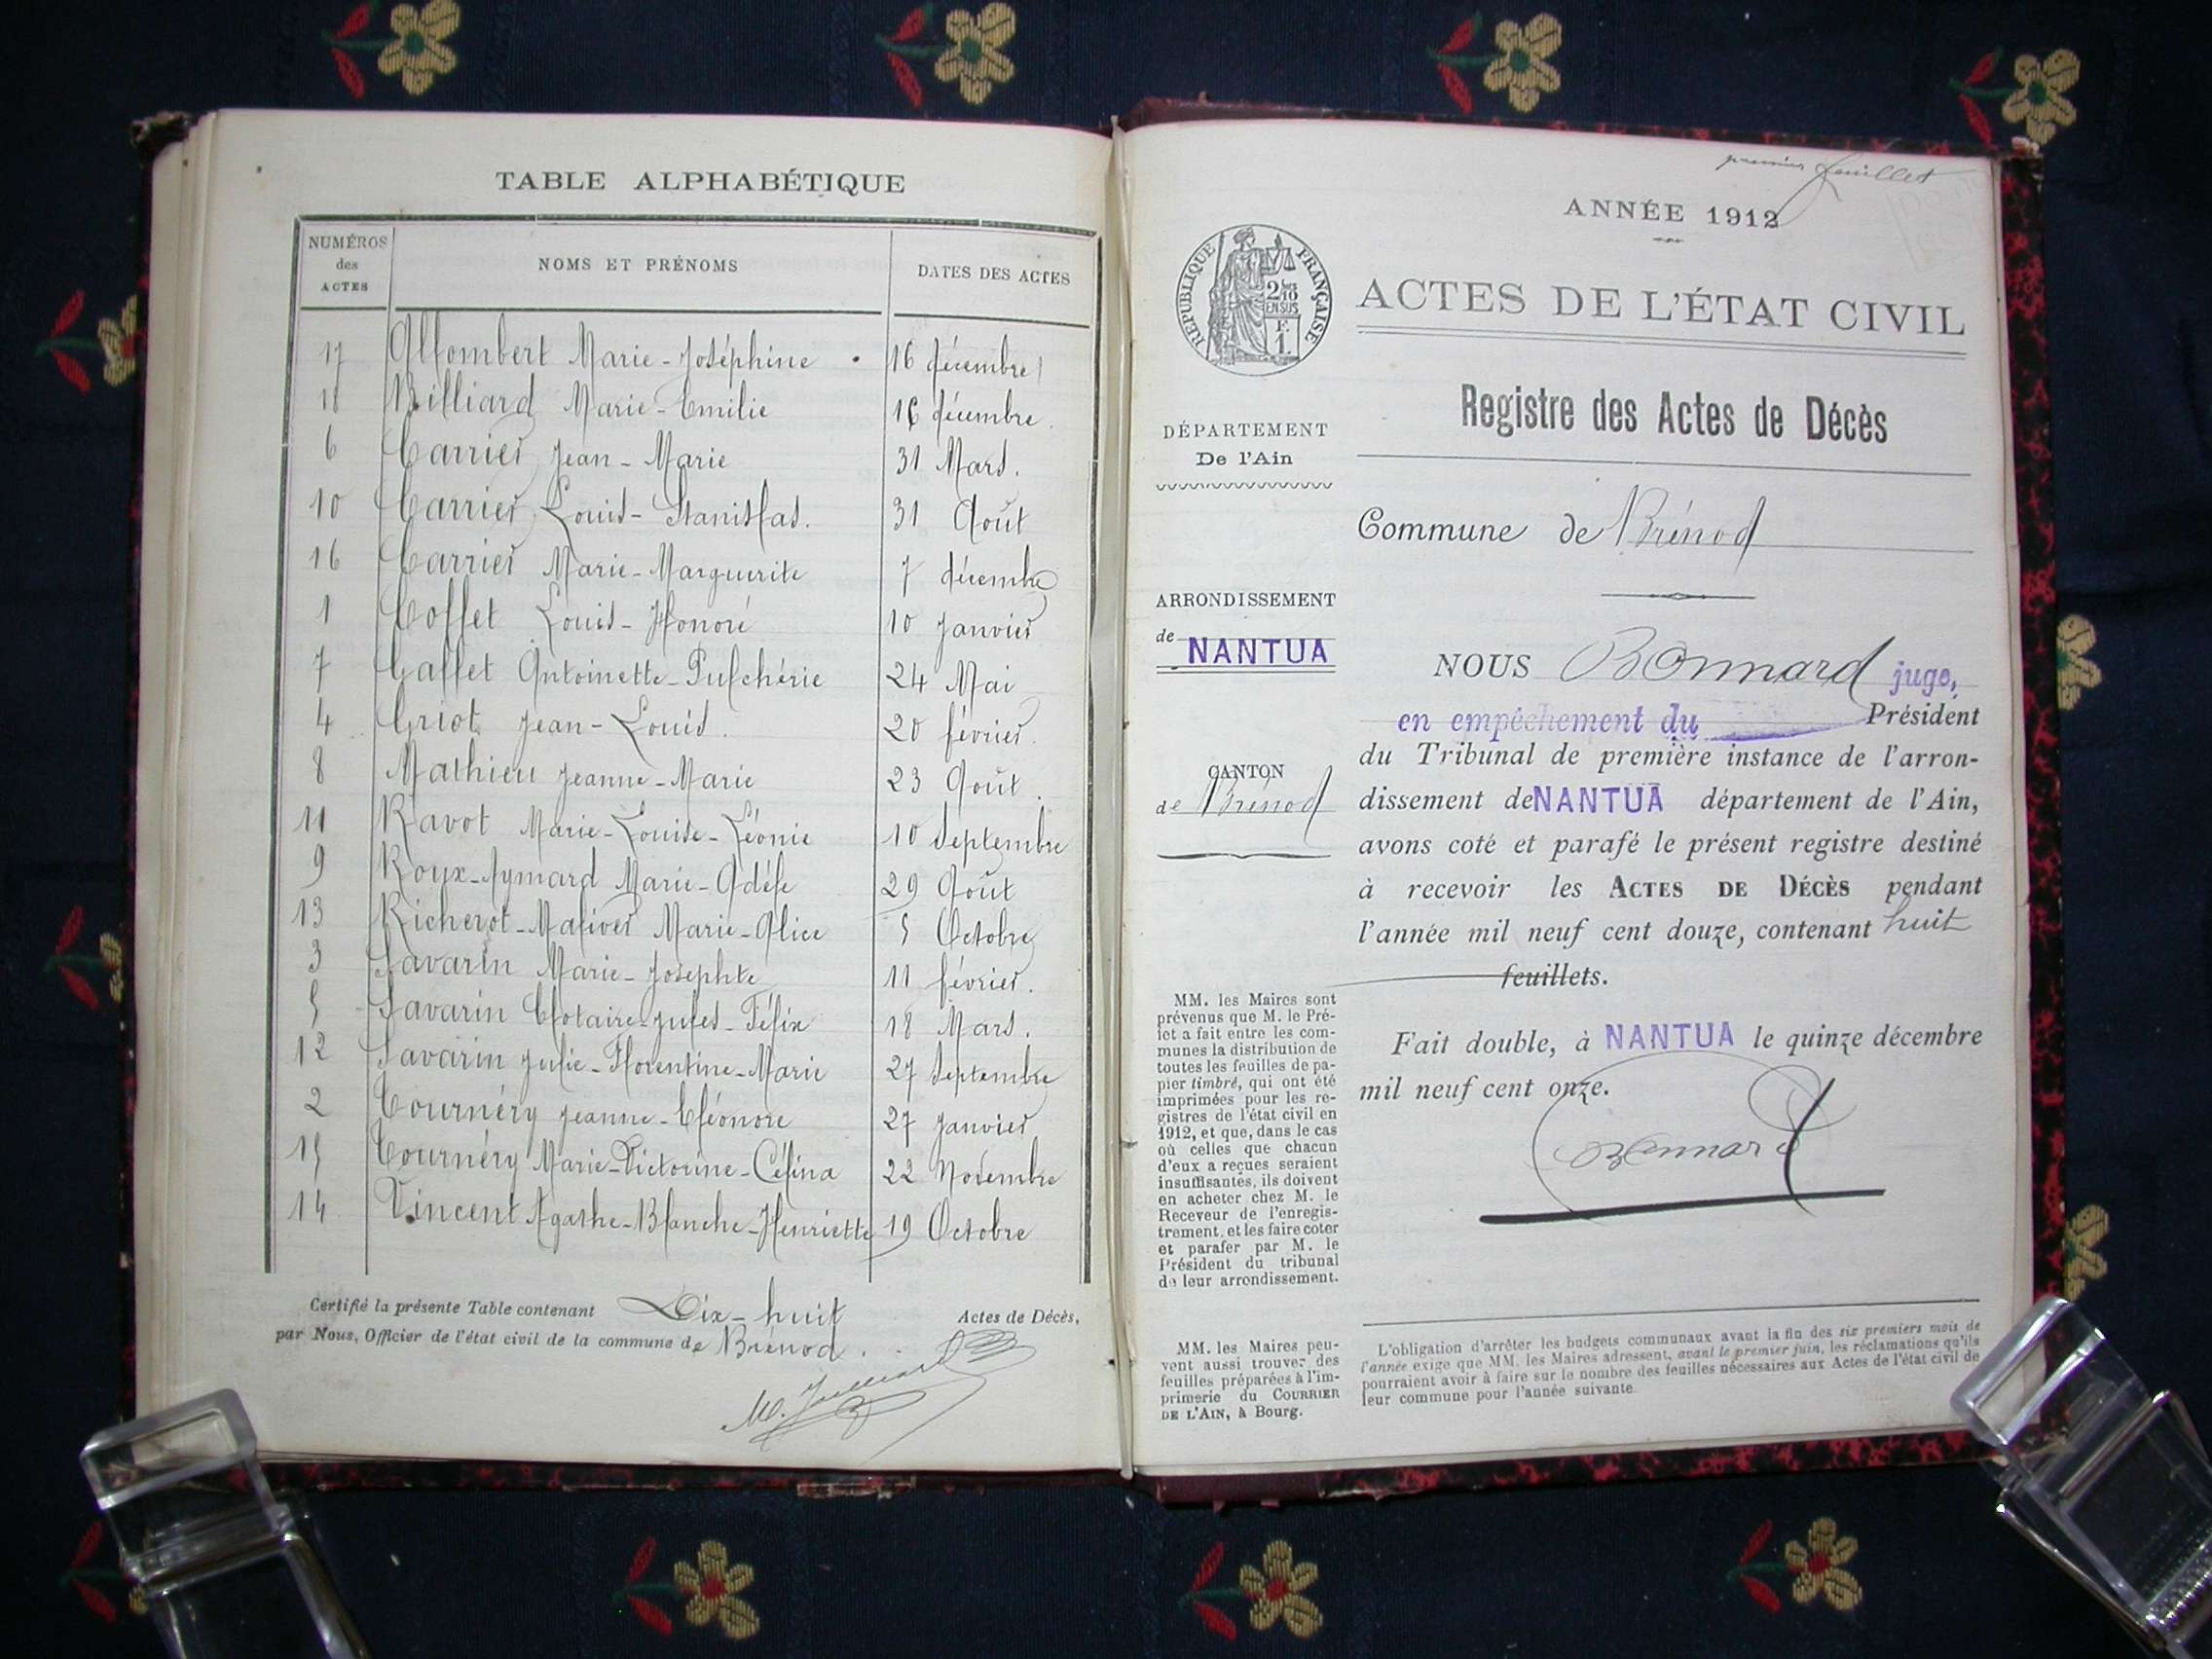 TABLE ALPHABÉTIQUE
NUMÉROS des ACTES NOMS ET PRÉNOMS DATES DES ACTES
17 Allombert Marie-Joséphine 16 décembre
18 Billiard Marie-Emilie 16 décembre
6 Carrier Jean-Marie 31 Mars.
10 Carrier Louis-Stanislas. 31 Août
16 Carrier Marie-Marguerite 7 décembre
1 Coffet Louis-Honoré 10 Janvier
7 Gallet Antoinette-Pulchérie 24 Mai
4 Griot Jean-Louis. 20 février.
8 Mathieu Jeanne-Marie 23 Août.
11 Ravot Marie-Louise-Léonie 10 Septembre
9 Roux-Aymard Marie-Adèle 29 Août
13 Richerot-Maliver Marie-Alice 5 Octobre
3 Savarin Marie-Josephte 11 février.
5 Savarin Clotaire-Jules-Félix 18 Mars.
12 Savarin Julie-Florentine-Marie 27 Septembre
2 Tournéry Jeanne-Eléonore 27 Janvier
15 Tournéry Marie-Victorine-Célina 22 Novembre
14 Vincent Agathe-Blanche-Henriette 19 Octobre
Certifié la présente Table contenant Dix-huit Actes de Décès,
par Nous, Officier de l'état civil de la commune de Brénod.
premier feuillet
ANNÉE 1912
RÉPUBLIQUE FRANÇAISE
2/10 EN SUS
F. 1.
ACTES DE L'ÉTAT CIVIL
Registre des Actes de Décès
DÉPARTEMENT
De l'Ain
Commune de Brénod
ARRONDISSEMENT
de NANTUA
CANTON
de Brénod
NOUS Bonnard juge,
en empêchement du Président
du Tribunal de première instance de l'arron-
dissement de NANTUA département de l'Ain,
avons coté et parafé le présent registre destiné
à recevoir les ACTES DE DÉCÈS pendant
l'année mil neuf cent douze, contenant huit
feuillets.
Fait double, à NANTUA le quinze décembre
mil neuf cent onze.
Bonnard
MM. les Maires sont
prévenus que M. le Pré-
fet a fait entre les com-
munes la distribution de
toutes les feuilles de pa-
pier timbré, qui ont été
imprimées pour les re-
gistres de l'état civil en
1912, et que, dans le cas
où celles que chacun
d'eux a reçues seraient
insuffisantes, ils doivent
en acheter chez M. le
Receveur de l'enregis-
trement, et les faire coter
et parafer par M. le
Président du tribunal
de leur arrondissement.
MM. les Maires peu-
vent aussi trouver des
feuilles préparées à l'im-
primerie du COURRIER
DE L'AIN, à Bourg.
L'obligation d'arrêter les budgets communaux avant la fin des six premiers mois de
l'année exige que MM. les Maires adressent, avant le premier juin, les réclamations qu'ils
pourraient avoir à faire sur le nombre des feuilles nécessaires aux Actes de l'état civil de
leur commune pour l'année suivante.